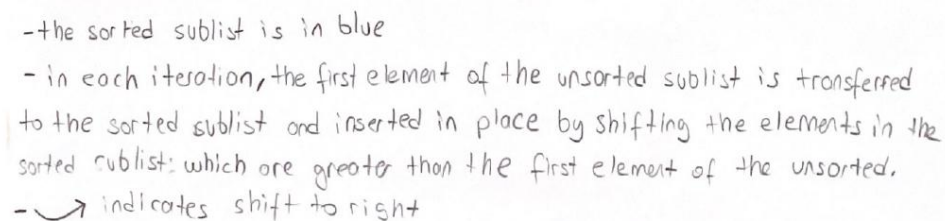 -the sorted sublist is in blue
- in each iteration, the first element of the unsorted sublist is transferred
to the sorted sublist and inserted in place by shifting the elements in the
sorted sublist; which are greater than the first element of the unsorted.
- indicates shift to right